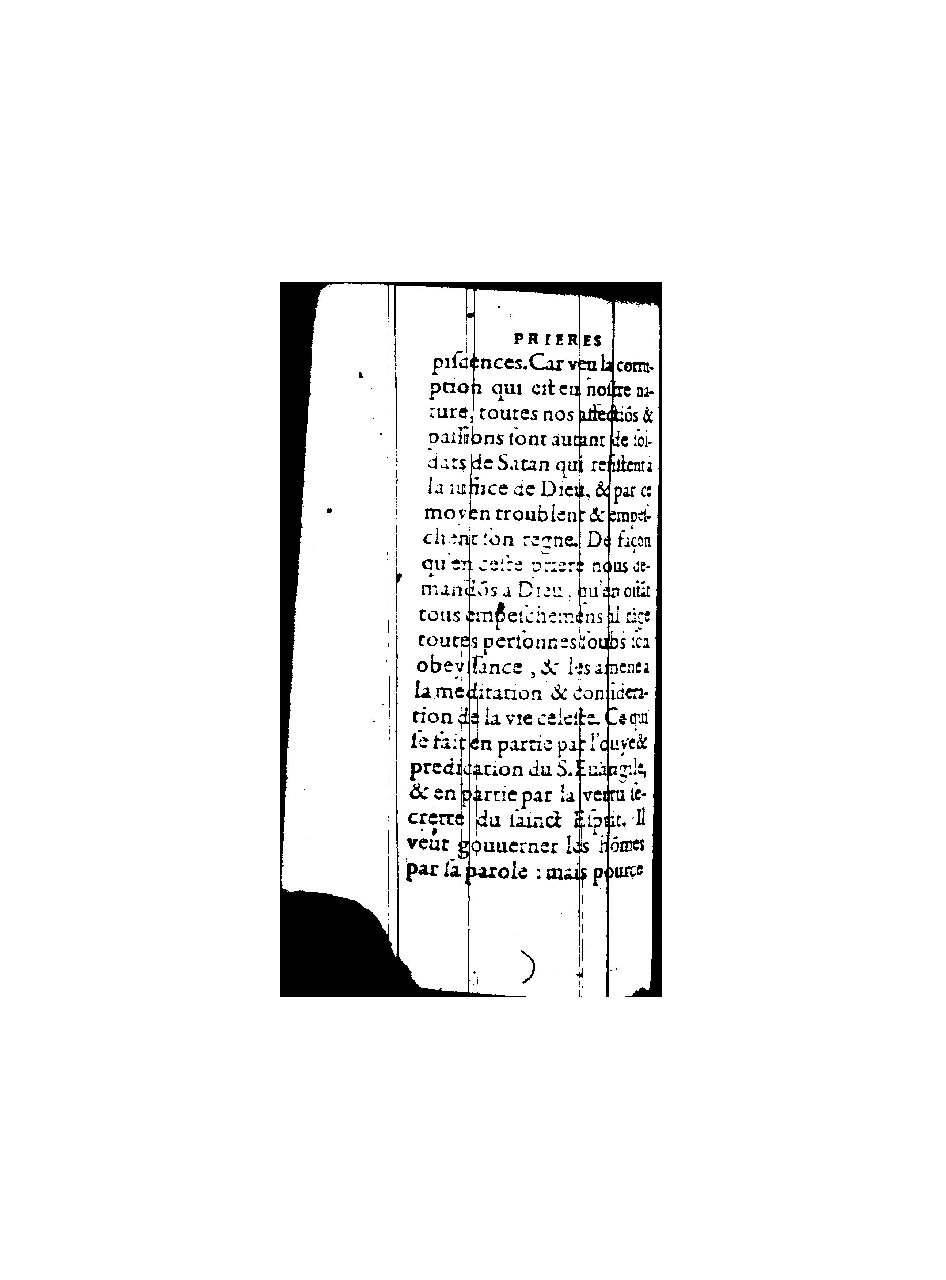 PRIERES
piſcences. Car veu la corru-
ption qui eſt en noſtre na-
ture, toutes nos affectiõs &
paſſions ſont autant de ſol-
dats de Satan qui reſiſtent à
la iuſtice de Dieu, & par ce
moyen troublent & empeſ-
chent ſon regne. De façon
qu'en ceſte priere nous de-
mandõs à Dieu, qu'en oſtãt
tous empeſchemens il rãge
toutes perſonnes ſoubs ſon
obeyſſance, & les amene à
la meditation & conſidera-
tion de la vie celeſte. Ce qui
ſe fait en partie par l'ouye &
predication du S. Euangile,
& en partie par la vertu ſe-
crette du ſainct Eſprit. Il
veut gouuerner les hõmes
par ſa parole : mais pource